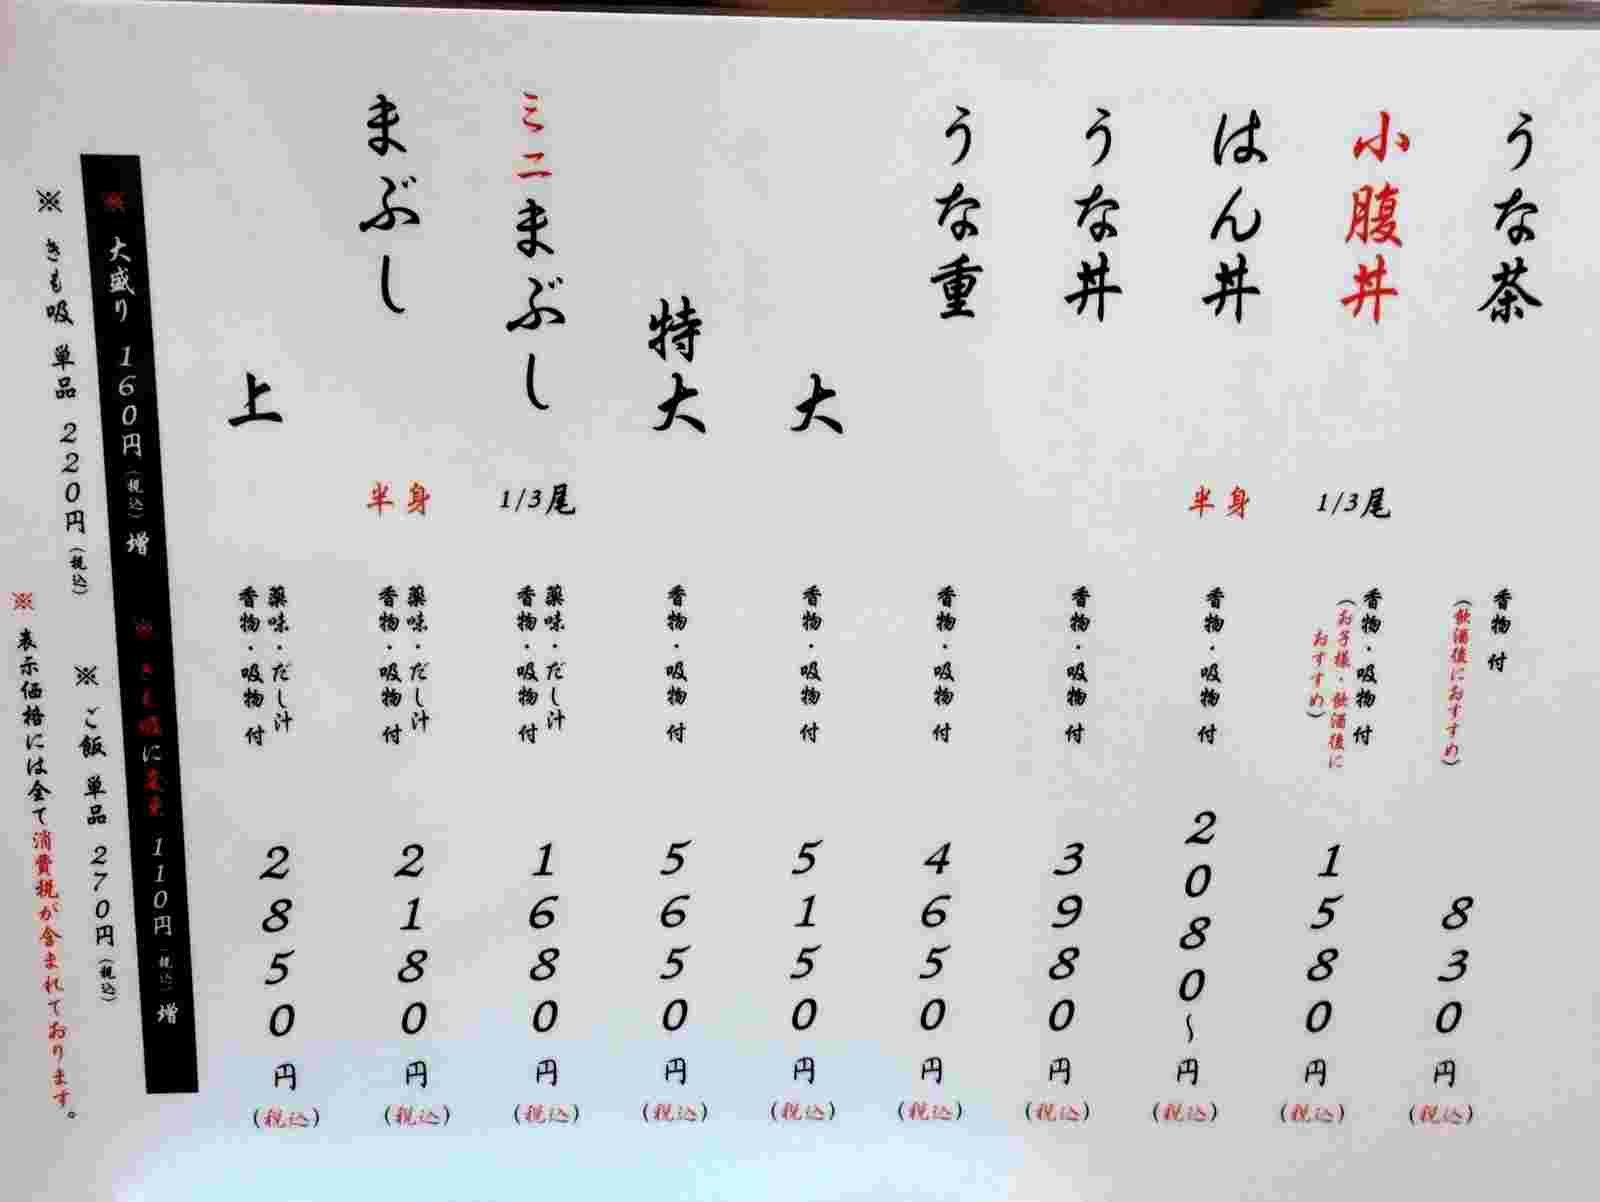 うな茶 香物 付 830円(税込)
(飲酒後におすすめ)
小腹丼 1/3尾 香物・吸物 付 1580円(税込)
(お子様・飲酒後に
おすすめ)
はん丼 半身 香物・吸物 付 2080～円(税込)
うな丼 香物・吸物 付 3980円(税込)
うな重 香物・吸物 付 4650円(税込)
大 香物・吸物 付 5150円(税込)
特大 香物・吸物 付 5650円(税込)
ミニまぶし 1/3尾 薬味・だし汁
香物・吸物 付 1680円(税込)
まぶし 半身 薬味・だし汁
香物・吸物 付 2180円(税込)
上 薬味・だし汁
香物・吸物 付 2850円(税込)
※ 大盛り 160円(税込)増 ※ きも吸に変更 110円(税込)増
※ きも吸 単品 220円(税込) ※ ご飯 単品 270円(税込)
※ 表示価格には全て消費税が含まれております。